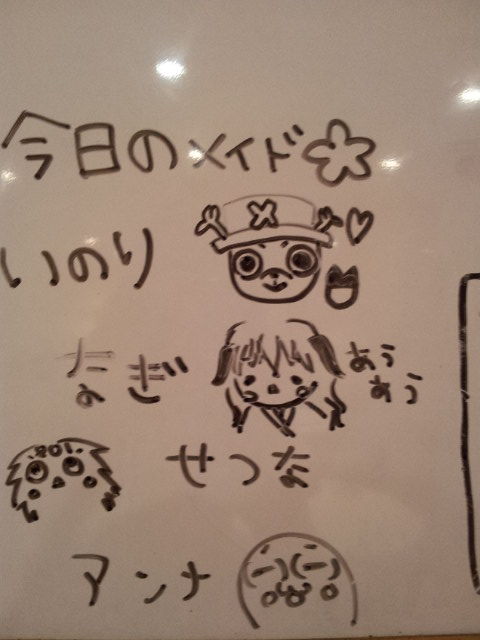 今日のメイド
いのり
なぎ
あう
あう
せつな
アンナ